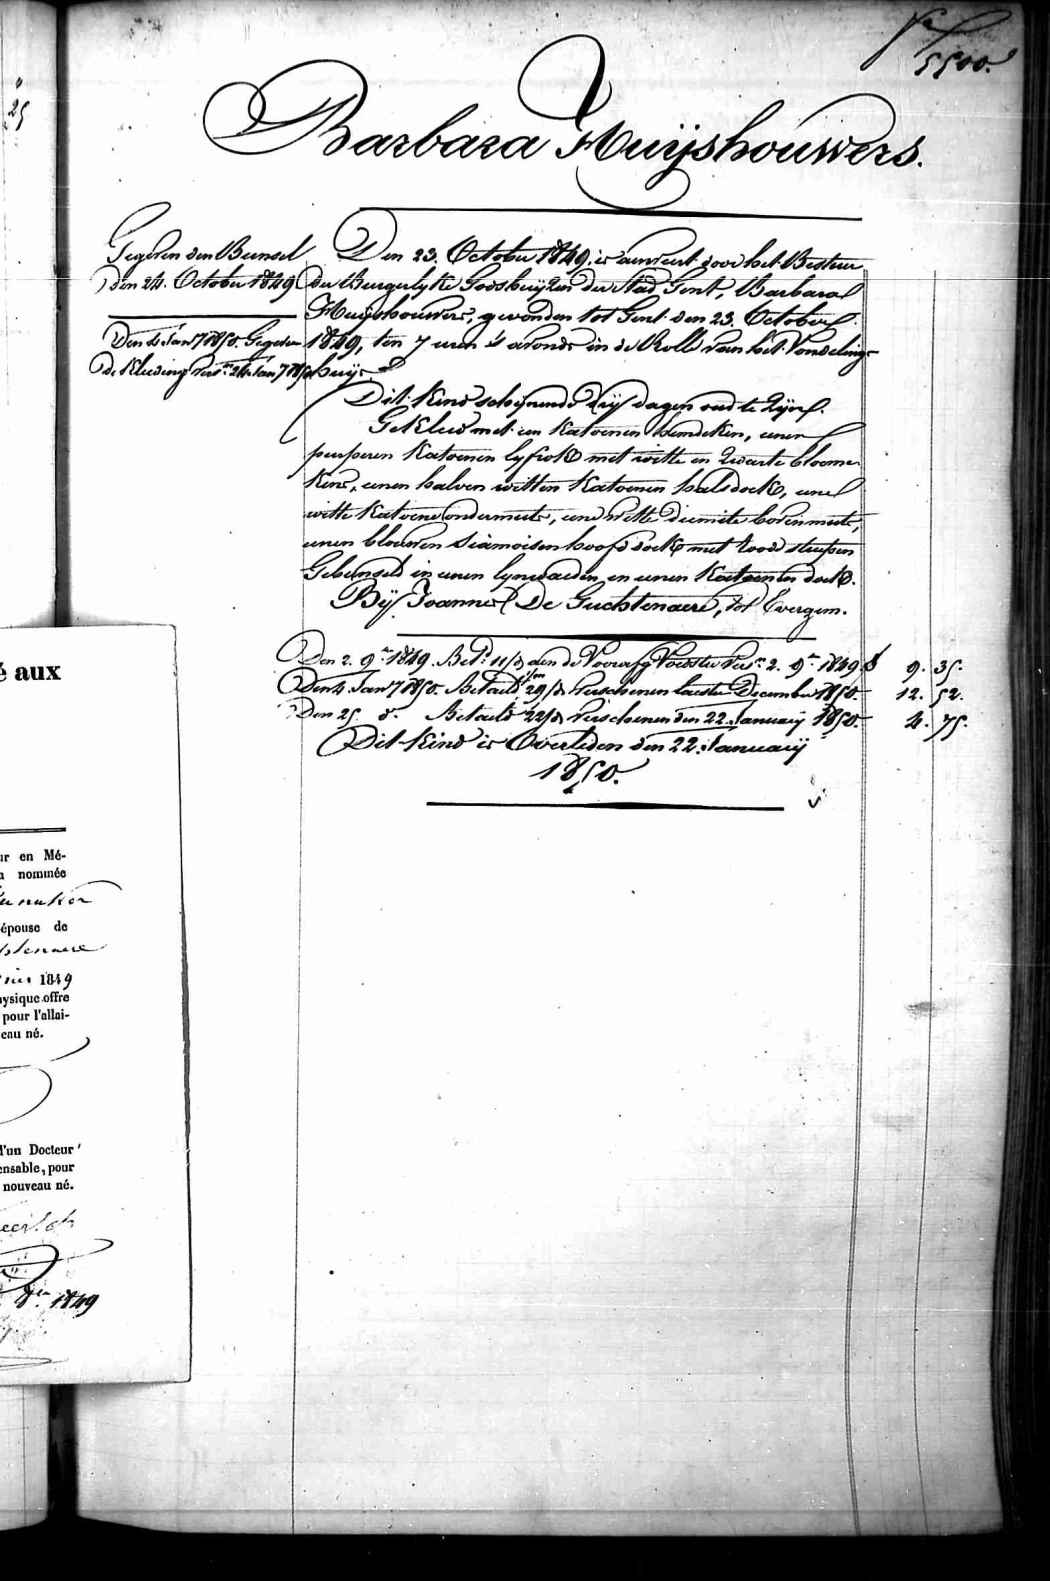 "
25
5500.
Barbara Huijshouwers.
Gegeven den Bunsel
den 24. October 1849
Den 4 Jan 1850. Gegeven
de Kleeding vers.
Den 23. October 1849. is aenveert door het Bestuer
der Burgerlyke Godshuyzen der Stad Gent, Barbara
Huijshouwers, gevonden tot Gent den 23. October
1849, ten 7 uren 's avonds in de Rolle van het Vondeling-
huijs
Dit kind schijnende drij dagen oud te zijn.
Gekleed met een katoenen hemdeken, eenen
purperen katoenen lyfrok met witte en zwarte bloeme-
kens, eenen halven witten katoenen halsdoek, eene
witte katoene ondermuts, eene witte diemite bovenmuts,
eenen blauwen siamoisen hoofddoek met roode streepen
Gebunseld in eenen lynwaeden en eenen katoenen doek.
Bij Joannes De Guchtenaere, tot Evergem.
Den 2. 9.re 1849. Bet. 11/d aen de Voedster vers. 2. 9.re 1849
9. 35.
Den 4 Jan 1850. Betaeld 29/d verschenen laeste December 1850.
12. 52.
Den 25. d.o Betaeld 22/d verschenen den 22. January 1850.
4. 75.
Dit kind is Overleden den 22. January
1850.
é aux
ur en Mé-
a nommée
épouse de
1849
hysique offre
pour l'allai-
eau né.
d'un Docteur
ensable, pour
nouveau né.
1849